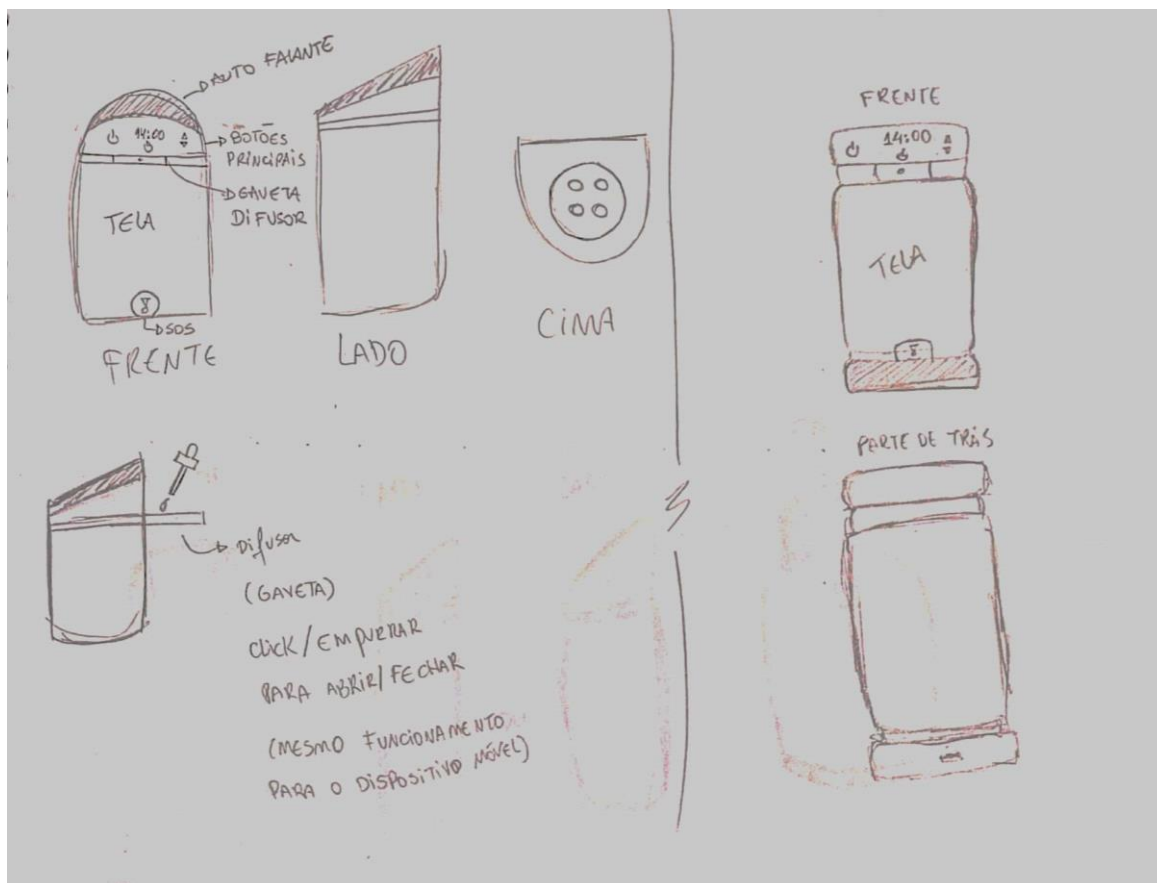 AUTO FALANTE
14:00
BOTÕES
PRINCIPAIS
GAVETA
DIFUSOR
TELA
SOS
FRENTE
LADO
CIMA
DIFUSOR
(GAVETA)
CLICK/EMPURRAR
PARA ABRIR/FECHAR
(MESMO FUNCIONAMENTO
PARA O DISPOSITIVO MÓVEL)
FRENTE
14:00
TELA
PARTE DE TRÁS